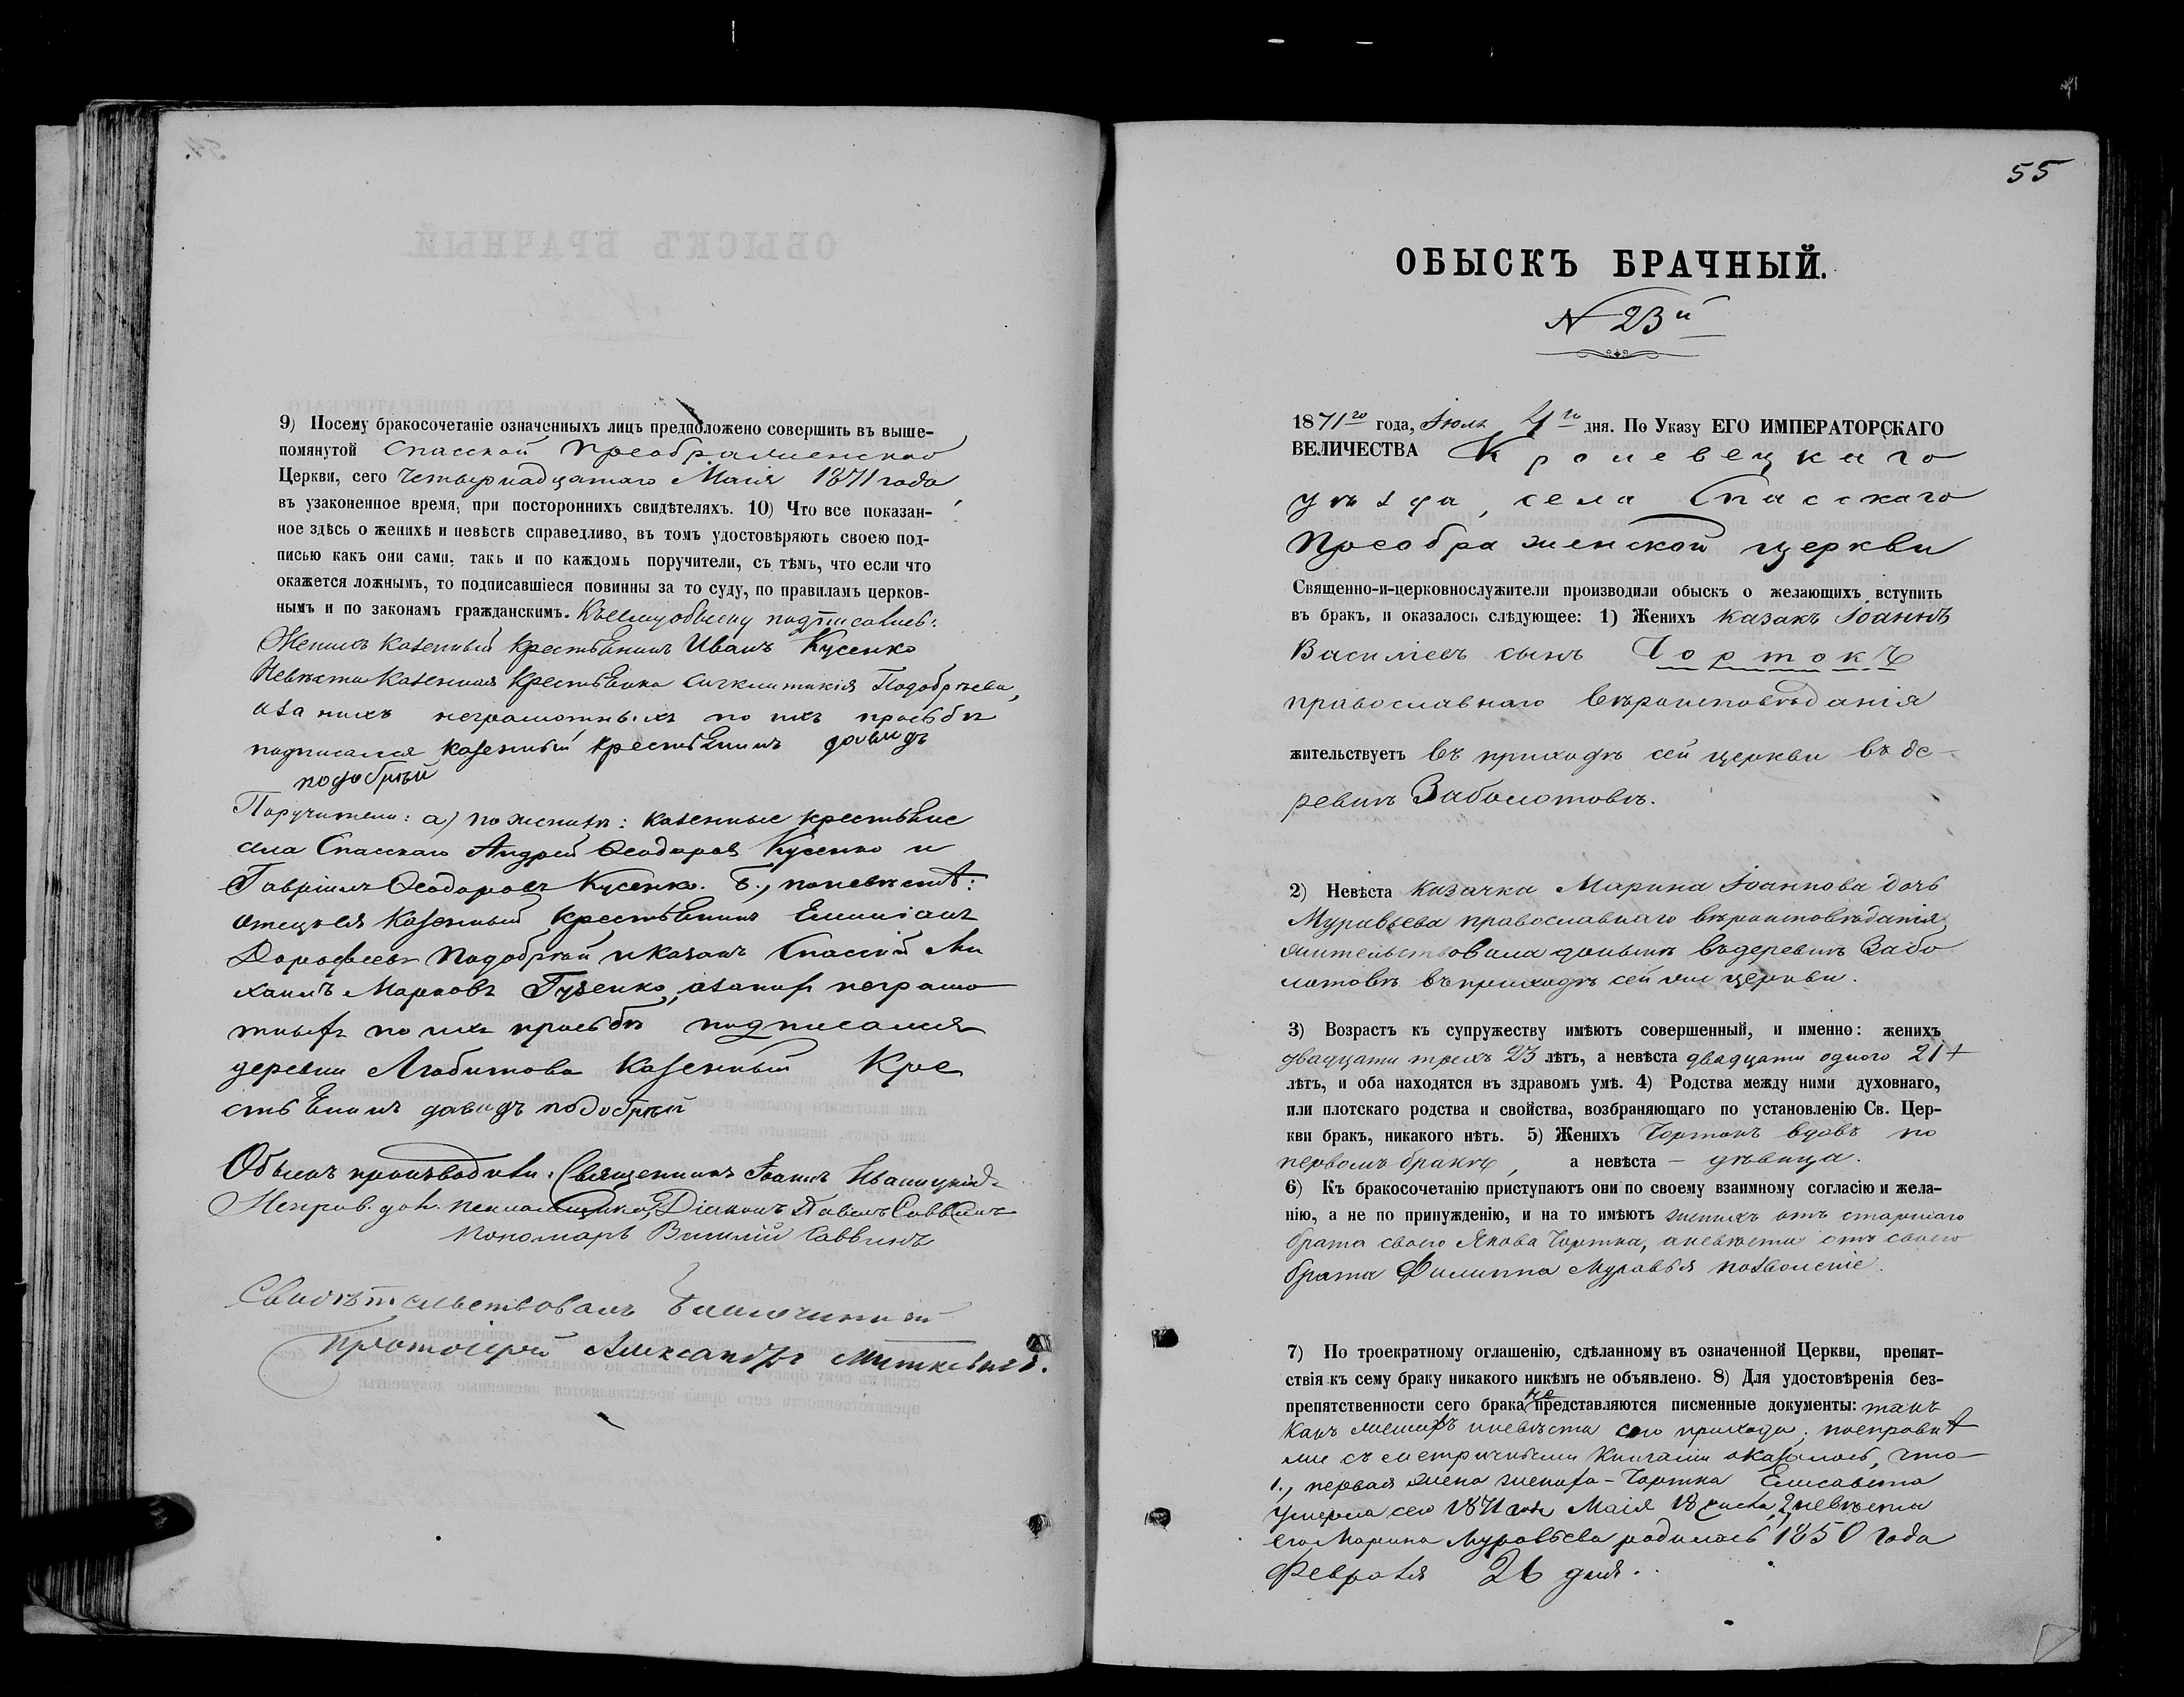 9) Посему бракосочетаніе означенныхъ лицъ предположено совершить въ выше-
помянутой Спасской Преображенской
Церкви, сего четырнадцатаго Маія 1871 года,
въ узаконенное время, при постороннихъ свидѣтеляхъ. 10) Что все показан-
ное здѣсь о женихѣ и невѣстѣ справедливо, въ томъ удостовѣряютъ своею под-
писью какъ они сами, такъ и по каждомъ поручители, съ тѣмъ, что если что
окажется ложнымъ, то подписавшіеся повинны за то суду, по правиламъ церков-
нымъ и по законамъ гражданскимъ. Къ сему обыску подписались:
Женихъ казенный крестьянинъ Иванъ Кусенко
Невѣста казенная крестьянка Синклитикія Подобрѣева,
а за нихъ неграмотныхъ по ихъ прозьбѣ
подписался казенный крестьянинъ давидъ
подобрѣй
Поручители: а) по женихѣ: казенные крестьяне
села Спасскаго Андрей Ѳеодоровъ Кусенко и
Гавріилъ Ѳеодоровъ Кусенко. б., по невѣстѣ:
отецъ ея казенный крестьянинъ Емиліанъ
Дорофеевъ Подобрѣй и казакъ Спаскій Ми
хаилъ Марковъ Гузенко, а за них неграмо
тных по ихъ прозьбѣ подписался
деревни Любитова казенный Кре
стьянинъ давидъ подобрѣй
Обыскъ производили: Священникъ Іоаннъ Иваницкій
Исправ. дол. псаломщика, Діаконъ Павелъ Саввинъ
Пономаръ Василій Саввинъ
Свидѣтельствовалъ Благочинный
Протоіерей Александръ Миткевичъ.
55
ОБЫСКЪ БРАЧНЫЙ.
N 23й
1871го года, Іюля 4го дня. По Указу ЕГО ИМПЕРАТОРСКАГО
ВЕЛИЧЕСТВА Кролевецкаго
уѣзда, села Спасскаго
Преображенской церкви
Священно-и-церковнослужители производили обыскъ о желающихъ вступить
въ бракъ, и оказалось слѣдующее: 1) Женихъ казакъ Іоаннъ
Василіевъ сынъ Чортокъ
православнаго вѣроисповѣданія
жительствуетъ въ приходѣ сей церкви въ де-
ревнѣ Заболотовѣ.
2) Невѣста казачка Марина Іоаннова дочь
Муравьева православнаго вѣроисповѣданія,
жительствовала донынѣ въ деревнѣ Забо
лотовѣ въ приходѣ сей же церкви.
3) Возрастъ къ супружеству имѣютъ совершенный, и именно: женихъ
двадцати трехъ 23 лѣтъ, а невѣста двадцати одного 21
лѣтъ, и оба находятся въ здравомъ умѣ. 4) Родства между ними духовнаго,
или плотскаго родства и свойства, возбраняющаго по установленію Св. Цер-
кви бракъ, никакого нѣтъ. 5) Женихъ Чортокъ вдовъ по
первомъ бракѣ, а невѣста – дѣвица.
6) Къ бракосочетанію приступаютъ они по своему взаимному согласію и жела-
нію, а не по принужденію, и на то имѣютъ женихъ отъ старшаго
брата своего Якова Чортка, а невѣста отъ своего
брата Филиппа Муравья позволеніе.
7) По троекратному оглашенію, сдѣланному въ означенной Церкви, препят-
ствія къ сему браку никакого никѣмъ не объявлено. 8) Для удостовѣренія без-
препятственности сего брака не представляются писменные документы: такъ
какъ женихъ и невѣста сего прихода; по справкѣ
же съ метричными книгами оказалось, что
1., первая жена жениха – Чортка Елисавета
умерла сего 1871 года Маія 18 числа, 2, невѣста
его Марина Муравьева родилась 1850 года
Февраля 26 дня.